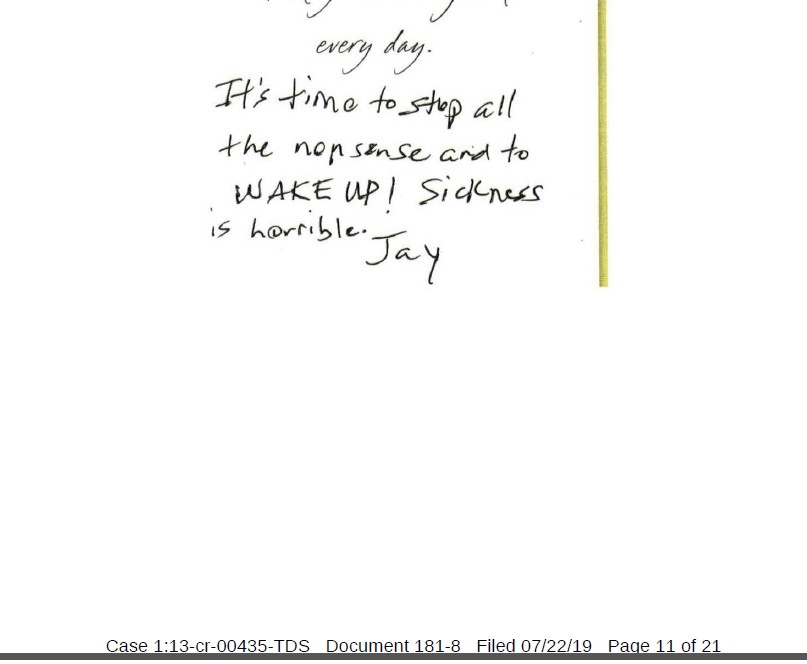 every day.
It's time to stop all
the nonsense and to
WAKE UP! Sickness
is horrible.
Jay
Case 1:13-cr-00435-TDS Document 181-8 Filed 07/22/19 Page 11 of 21